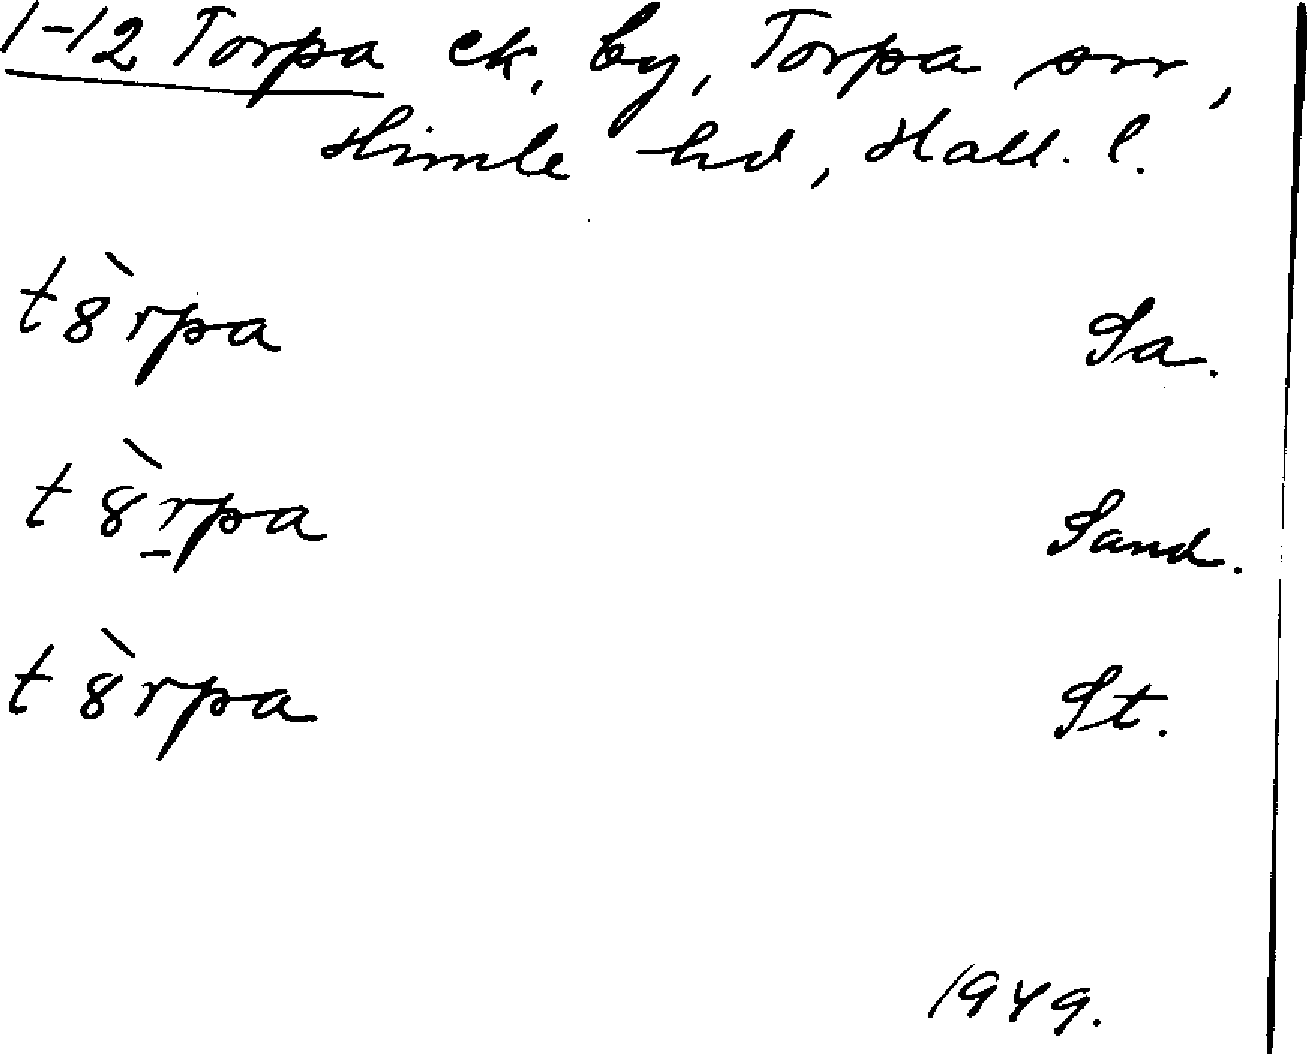 1-12 Torpa ek. by, Torpa srr,
Himle hd, Hall. l.
tꝏ̀rpa Sa.
tꝏ̀r̠pa Sand.
tꝏ̀rpa St.
1949.